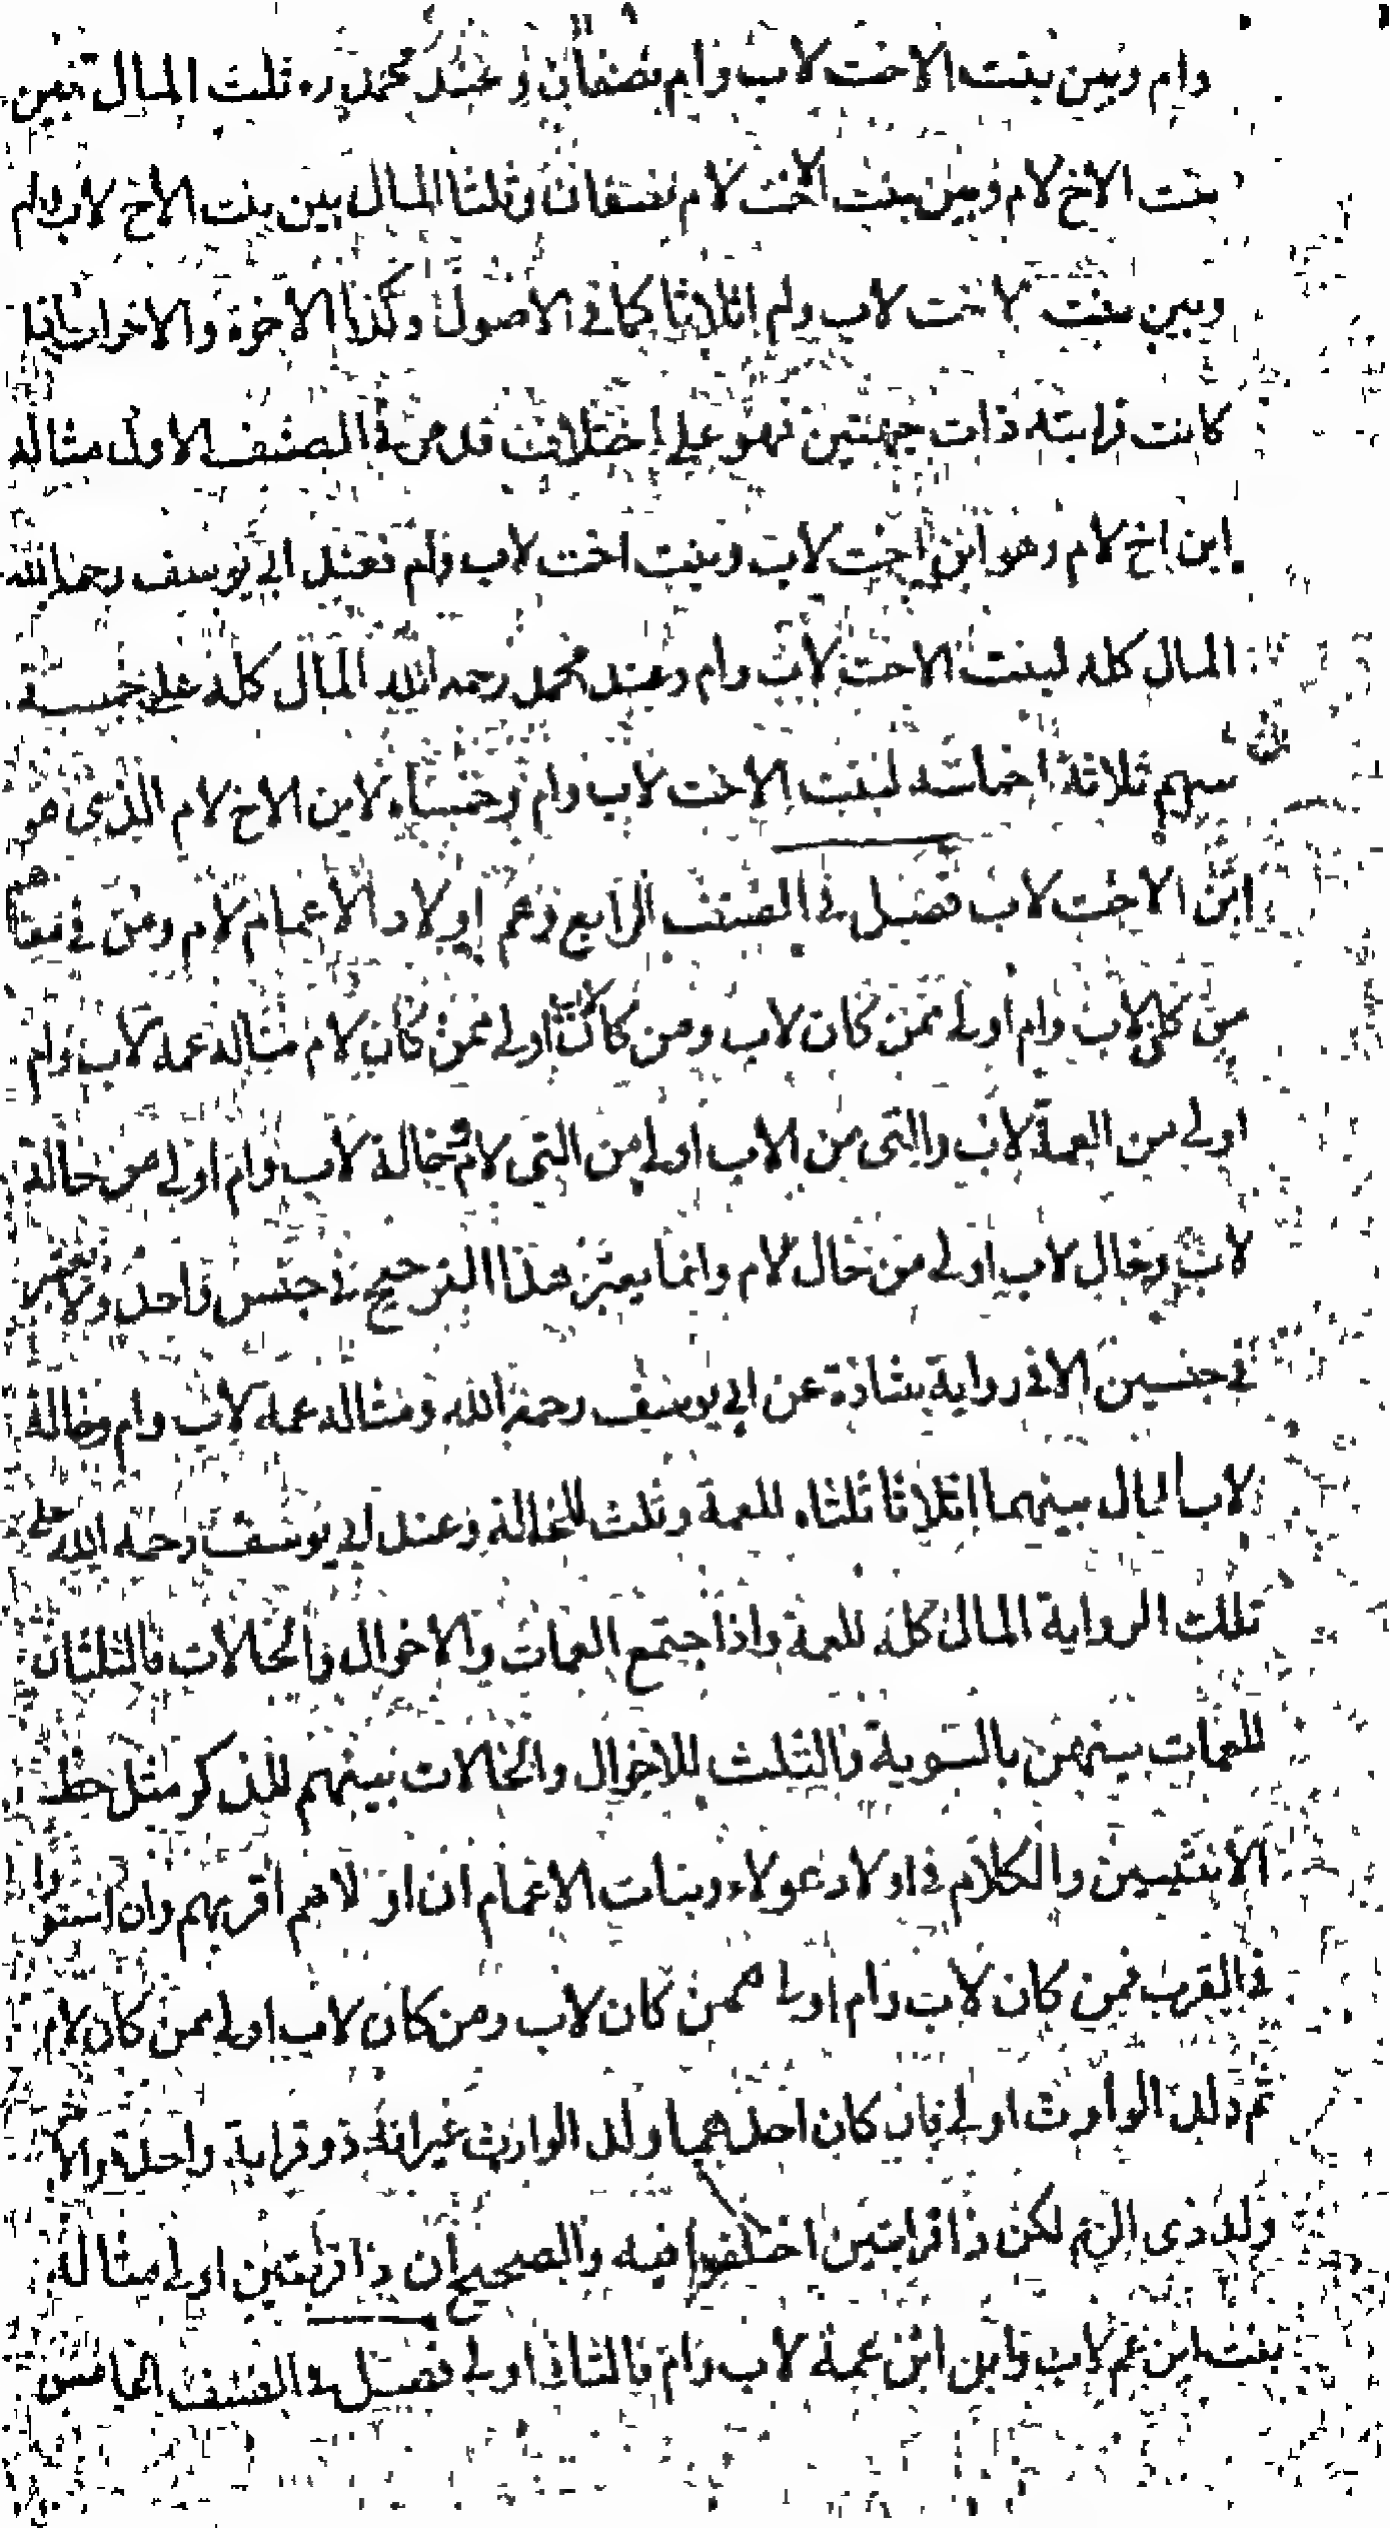 وام وبين بنت الاخت لاب وام نصفان وعند محمد ره ثلث المال بين
بنت الاخ لام وبين بنت الاخت لام نصفان وثلثا المال بين بنت الاخ لاب وام
وبين بنت الاخت لاب وام اثلاثا كما في الاصول وكذا الاخوة والاخوات اذا
كانت قرابته ذات جهتين فهو على اختلاف قد مر في الصنف الاول مثاله
ابن اخ لام وهو ابن اخت لاب وبنت اخت لاب وام فعند ابي يوسف رحمه الله
المال كله لبنت الاخت لاب وام وعند محمد رحمه الله المال كله على خمسة
سهم ثلاثة اخماسه لبنت الاخت لاب وام وخمساه لابن الاخ لام الذي هو
ابن الاخت لاب فصل في الصنف الرابع وهم اولاد الاعمام لام ومن في معناهم
من كان لاب وام اولى ممن كان لاب ومن كان لاب اولى ممن كان لام مثاله عمه لاب وام
اولى من العمة لاب والتي من الاب اولى من التي لام وخالة لاب وام اولى من خالة
لاب وخال لاب اولى من خال لام وانما يعتبر هذا الترجيح في جنس واحد ولا يعتبر
في جنسين الا في رواية شاذة عن ابي يوسف رحمه الله ومثاله عمه لاب وام وخالة
لاب المال بينهما اثلاثا ثلثاه للعمة وثلث للخالة وعند ابي يوسف رحمه الله على
تلك الرواية المال كله للعمة واذا اجتمع العمات والاخوال والخالات فالثلثان
للعمات بينهن بالسوية والثلث للاخوال والخالات بينهم للذكر مثل حظ
الانثيين والكلام في اولاد هؤلاء وبنات الاعمام ان اولاهم اقربهم وان استووا
في القرب فمن كان لاب وام اولى ممن كان لاب ومن كان لاب اولى ممن كان لام
ثم ولد الوارث اولى فان كان احدهما ولد الوارث غير انه ذو قرابة واحدة والاخر
ولد ذي الرحم لكن ذا قرابتين اختلفوا فيه والصحيح ان ذا قرابتين اولى مثاله
بنت ابن عم لاب وابن ابن عمة لاب وام فالثاني اولى فصل في الصنف الخامس